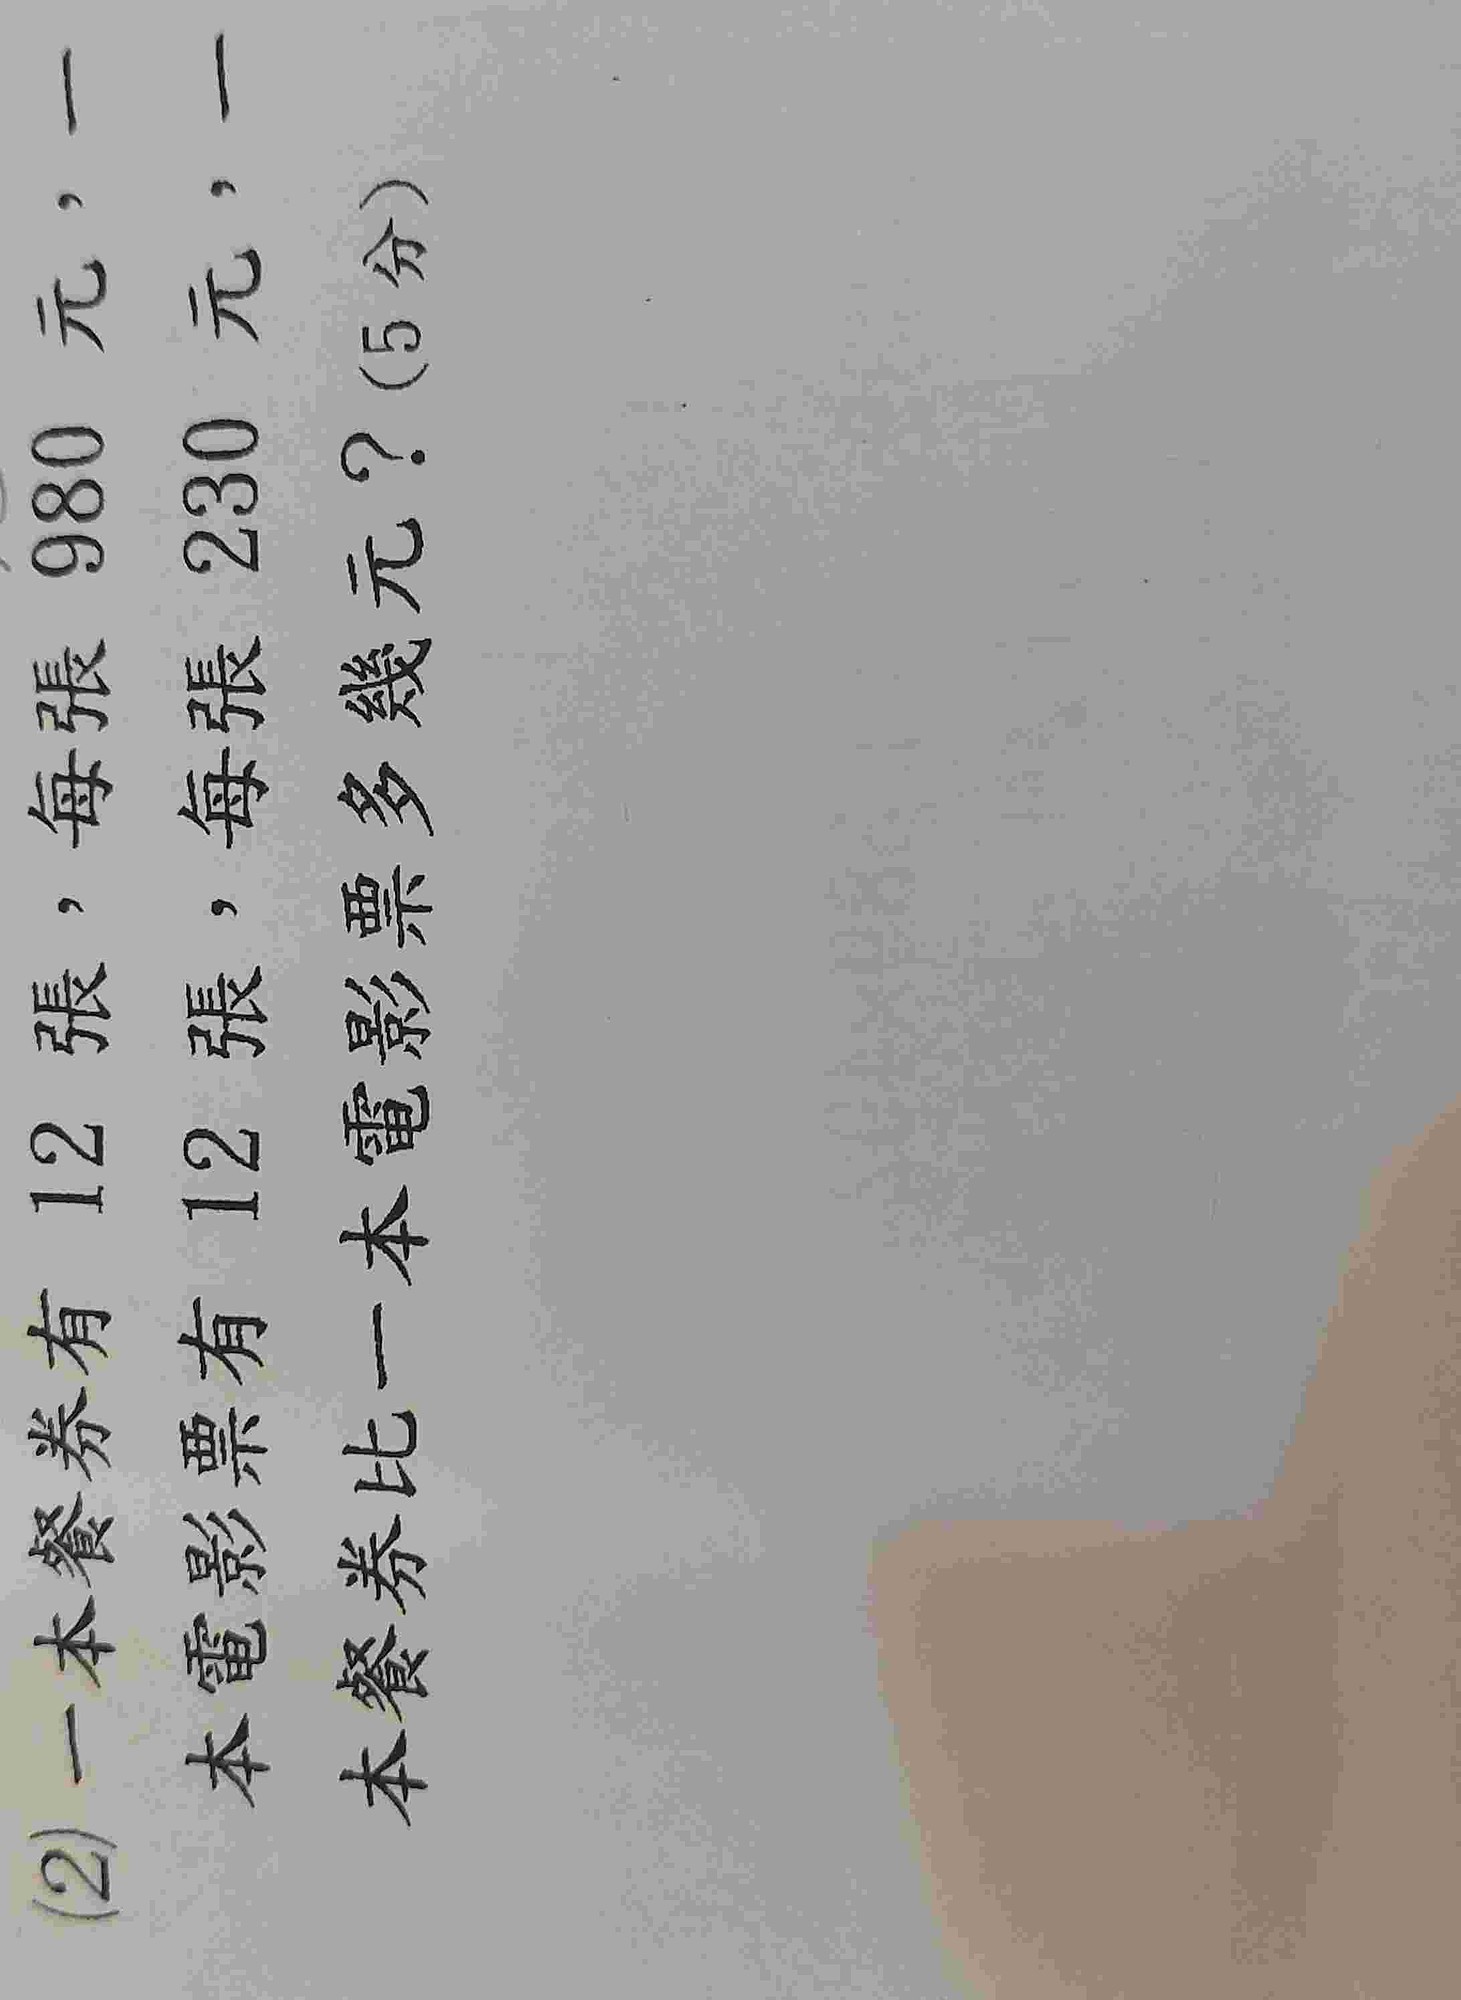 (2)一本餐券有 12 張，每張 980 元，一
本電影票有 12 張，每張 230 元，一
本餐券比一本電影票多幾元？(5 分)